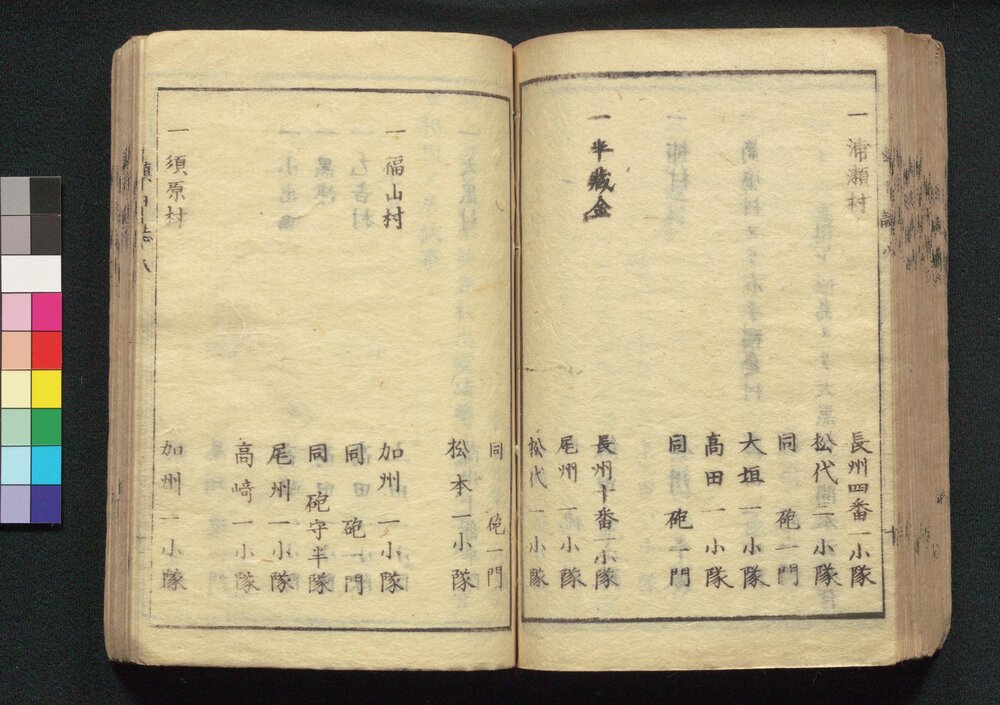 一浦瀬村
長州四番一小隊
松代二小隊
同 砲一門
大垣一小隊
高田一小隊
同 砲一門
一半蔵金
長州十番一小隊
尾州一小隊
松代一小隊
同 砲一門
松本一小隊
一福山村
加州一小隊
同 砲一門
同 砲守半隊
尾州一小隊
高崎一小隊
一須原村
加州一小隊